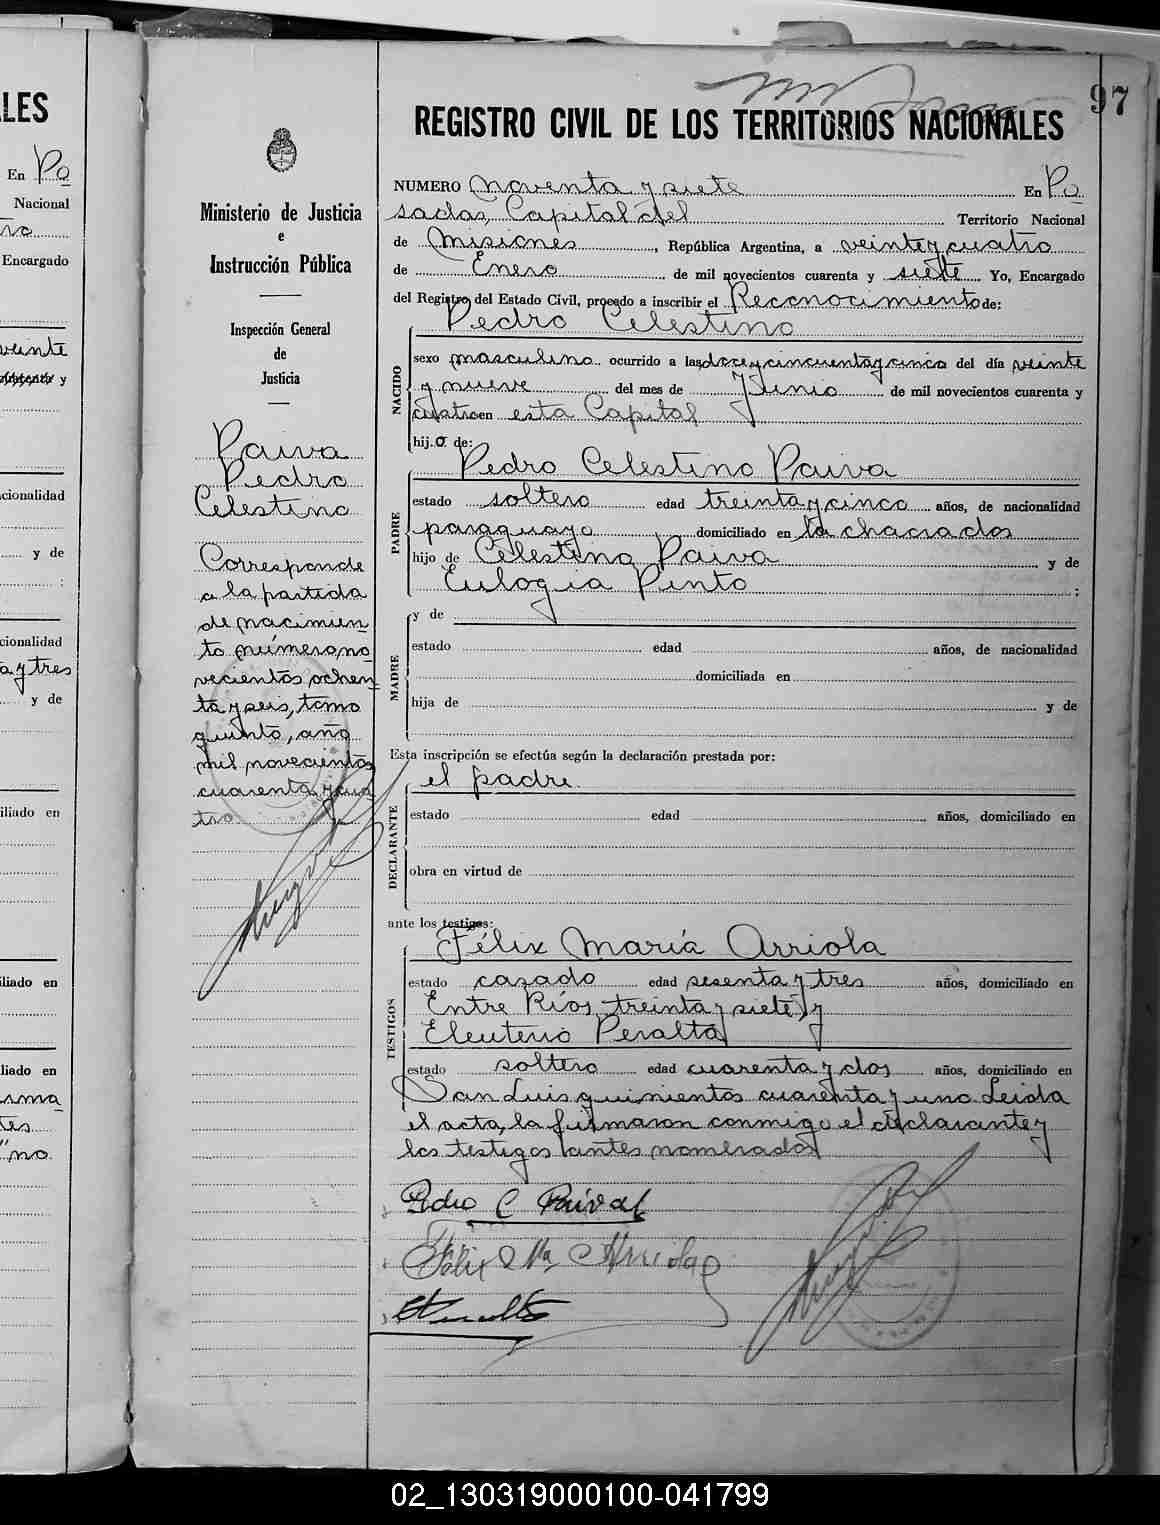 97
REGISTRO CIVIL DE LOS TERRITORIOS NACIONALES
Ministerio de Justicia
e
Instrucción Pública
Inspección General
de
Justicia
Paiva
Pedro
Celestino
Corresponde
a la partida
de nacimien
to número no
vecientos ochen
ta y seis, tomo
quinto, año
mil novecientos
cuarenta y cua
tro
NUMERO noventa y siete En Po
sadas, Capital del Territorio Nacional
de Misiones, República Argentina, a veinte y cuatro
de Enero de mil novecientos cuarenta y siete Yo, Encargado
del Registro del Estado Civil, procedo a inscribir el Reconocimiento de:
Pedro Celestino
NACIDO
sexo masculino ocurrido a las doce y cincuenta y cinco del día veinte
y nueve del mes de Junio de mil novecientos cuarenta y
cuatro en esta Capital
hijo de:
Pedro Celestino Paiva
PADRE
estado soltero edad treinta y cinco años, de nacionalidad
paraguayo domiciliado en la chacra dos
hijo de Celestino Paiva y de
Eulogia Pinto ;
MADRE
y de
estado edad años, de nacionalidad
domiciliada en
hija de y de
Esta inscripción se efectúa según la declaración prestada por:
el padre.
DECLARANTE
estado edad años, domiciliado en
obra en virtud de
ante los testigos:
Félix María Arriola
TESTIGOS
estado casado edad sesenta y tres años, domiciliado en
Entre Ríos treinta y siete, y
Eleuterio Peralta
estado soltero edad cuarenta y dos años, domiciliado en
San Luis quinientos cuarenta y uno. Leida
el acta, la firmaron conmigo el declarante y
los testigos antes nombrados
Pedro C Paiva
Félix Ma Arriola
E Peralta
LES
En Po
Nacional
Encargado
veinte
y
cionalidad
y de
cionalidad
a y tres
y de
iliado en
iliado en
liado en
02_130319000100-041799